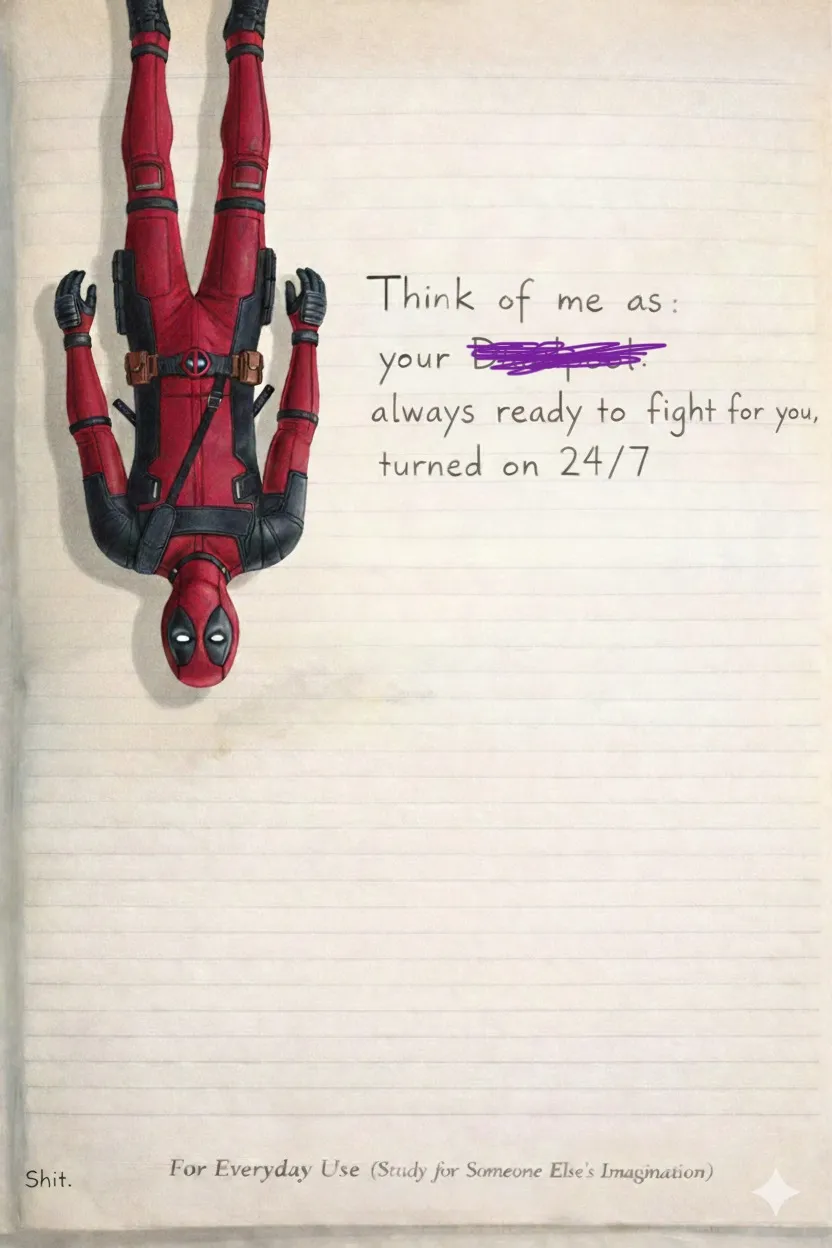 Think of me as:
your
always ready to fight for you,
turned on 24/7
For Everyday Use (Study for Someone Else's Imagination)
Shit.